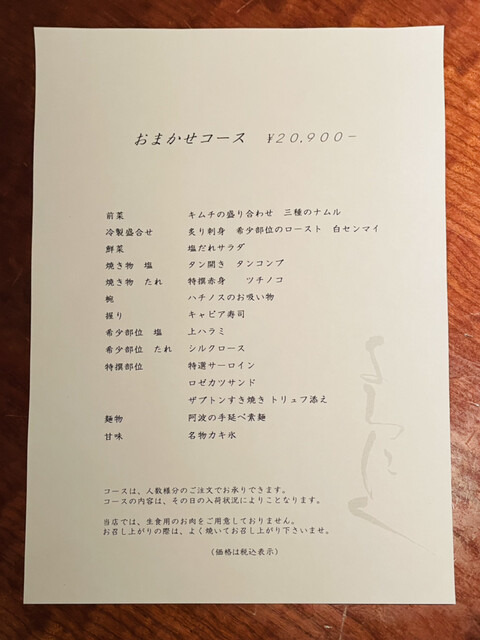 おまかせコース ¥20,900−
前菜 キムチの盛り合わせ 三種のナムル
冷製盛合せ 炙り刺身 希少部位のロースト 白センマイ
鮮菜 塩だれサラダ
焼き物 塩 タン開き タンコンブ
焼き物 たれ 特撰赤身 ツチノコ
椀 ハチノスのお吸い物
握り キャビア寿司
希少部位 塩 上ハラミ
希少部位 たれ シルクロース
特撰部位 特選サーロイン
ロゼカツサンド
ザブトンすき焼き トリュフ添え
麺物 阿波の手延べ素麺
甘味 名物カキ氷
コースは、人数様分のご注文でお承りできます。
コースの内容は、その日の入荷状況によりことなります。
当店では、生食用のお肉をご用意しておりません。
お召し上がりの際は、よく焼いてお召し上がり下さいませ。
(価格は税込表示)